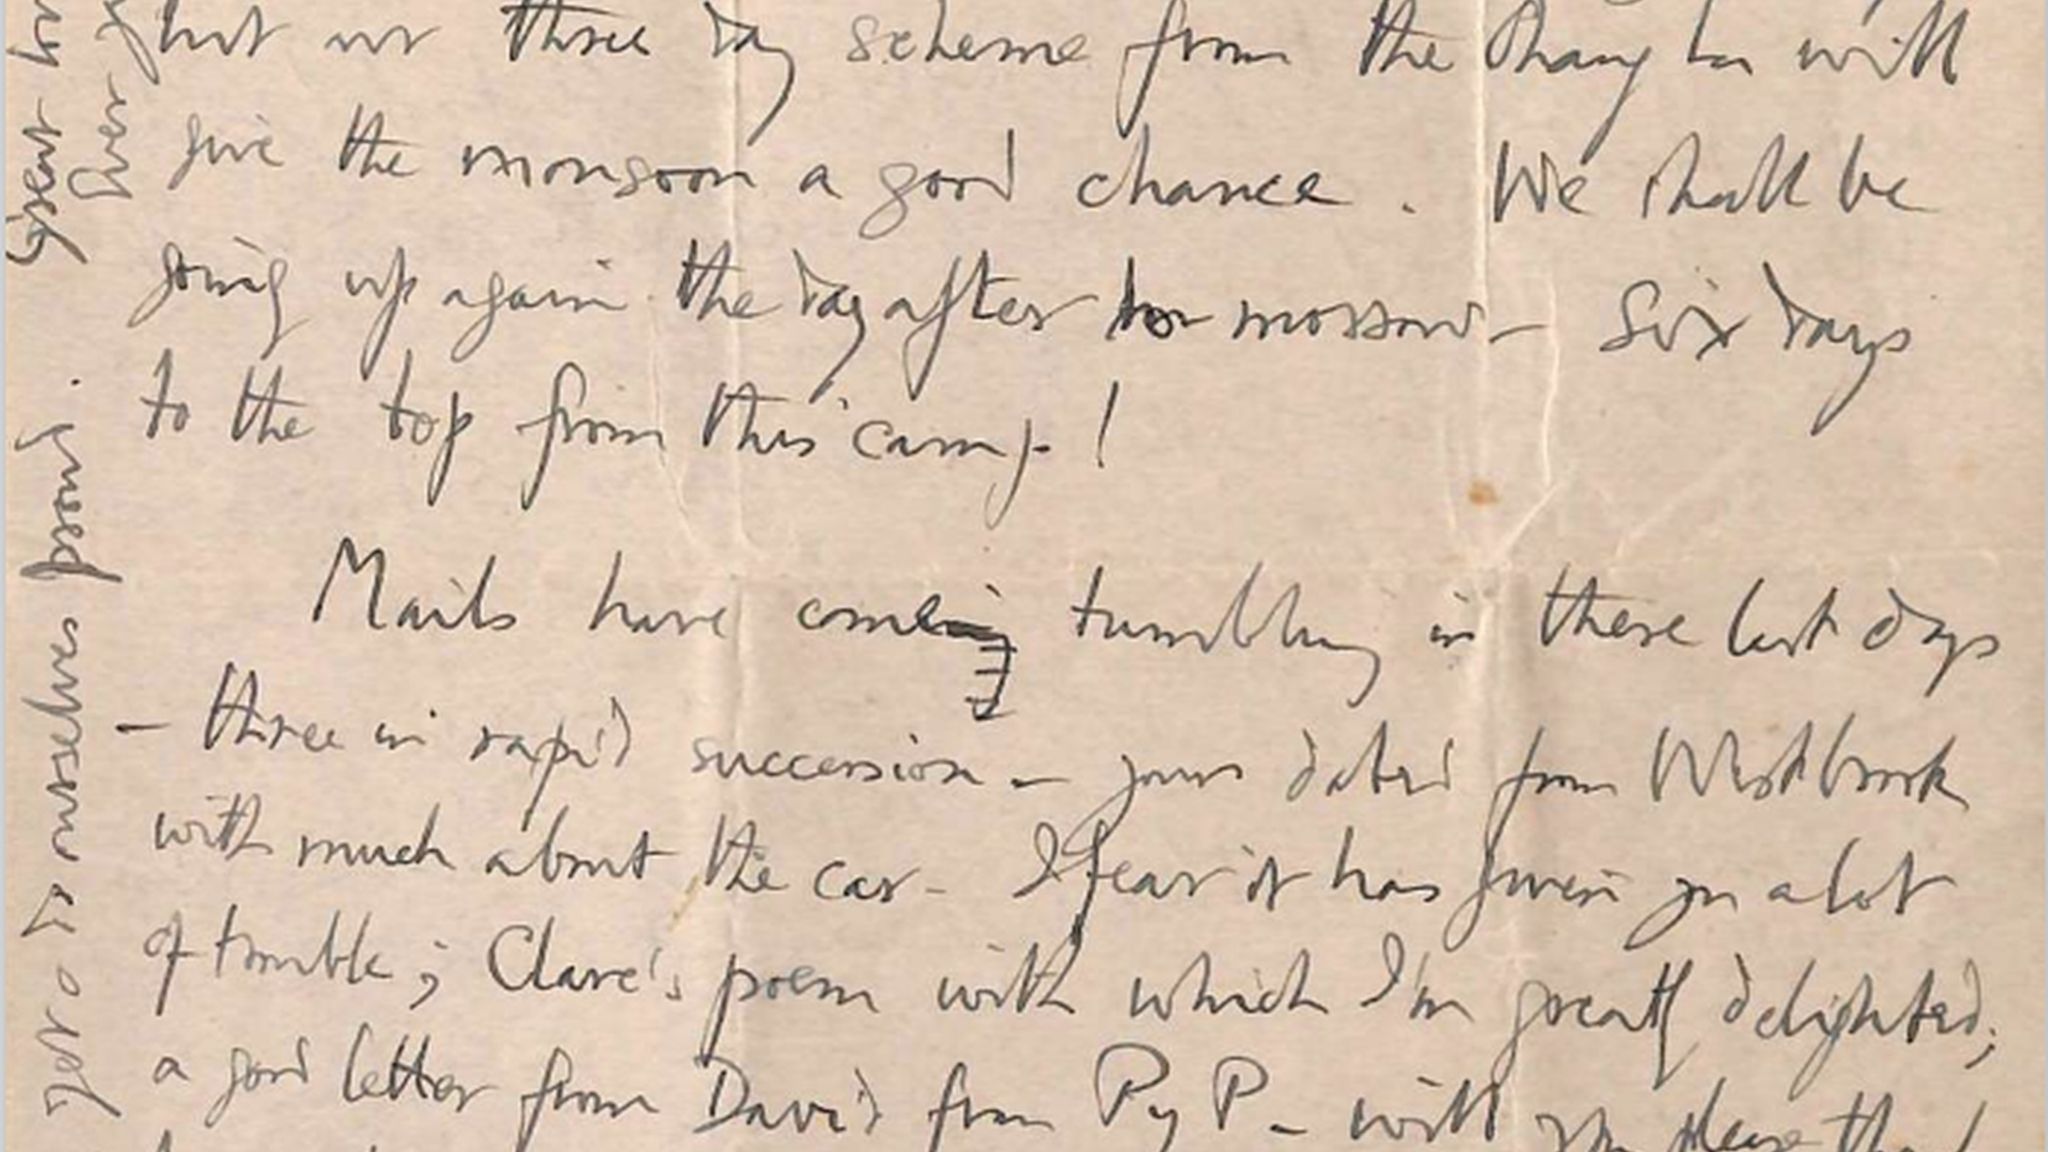 but our three day scheme from the Chang La will
give the monsoon a good chance. We shall be
going up again the day after to morrow – Six days
to the top from this camp!
Mails have come tumbling in these last days
– three in rapid succession – yours dated from Westbrook
with much about the car – I fear it has given you a lot
of trouble; Clare's poem with which I'm greatly delighted;
a good letter from David from Py P – will you please
ourselves proud.
Great
over